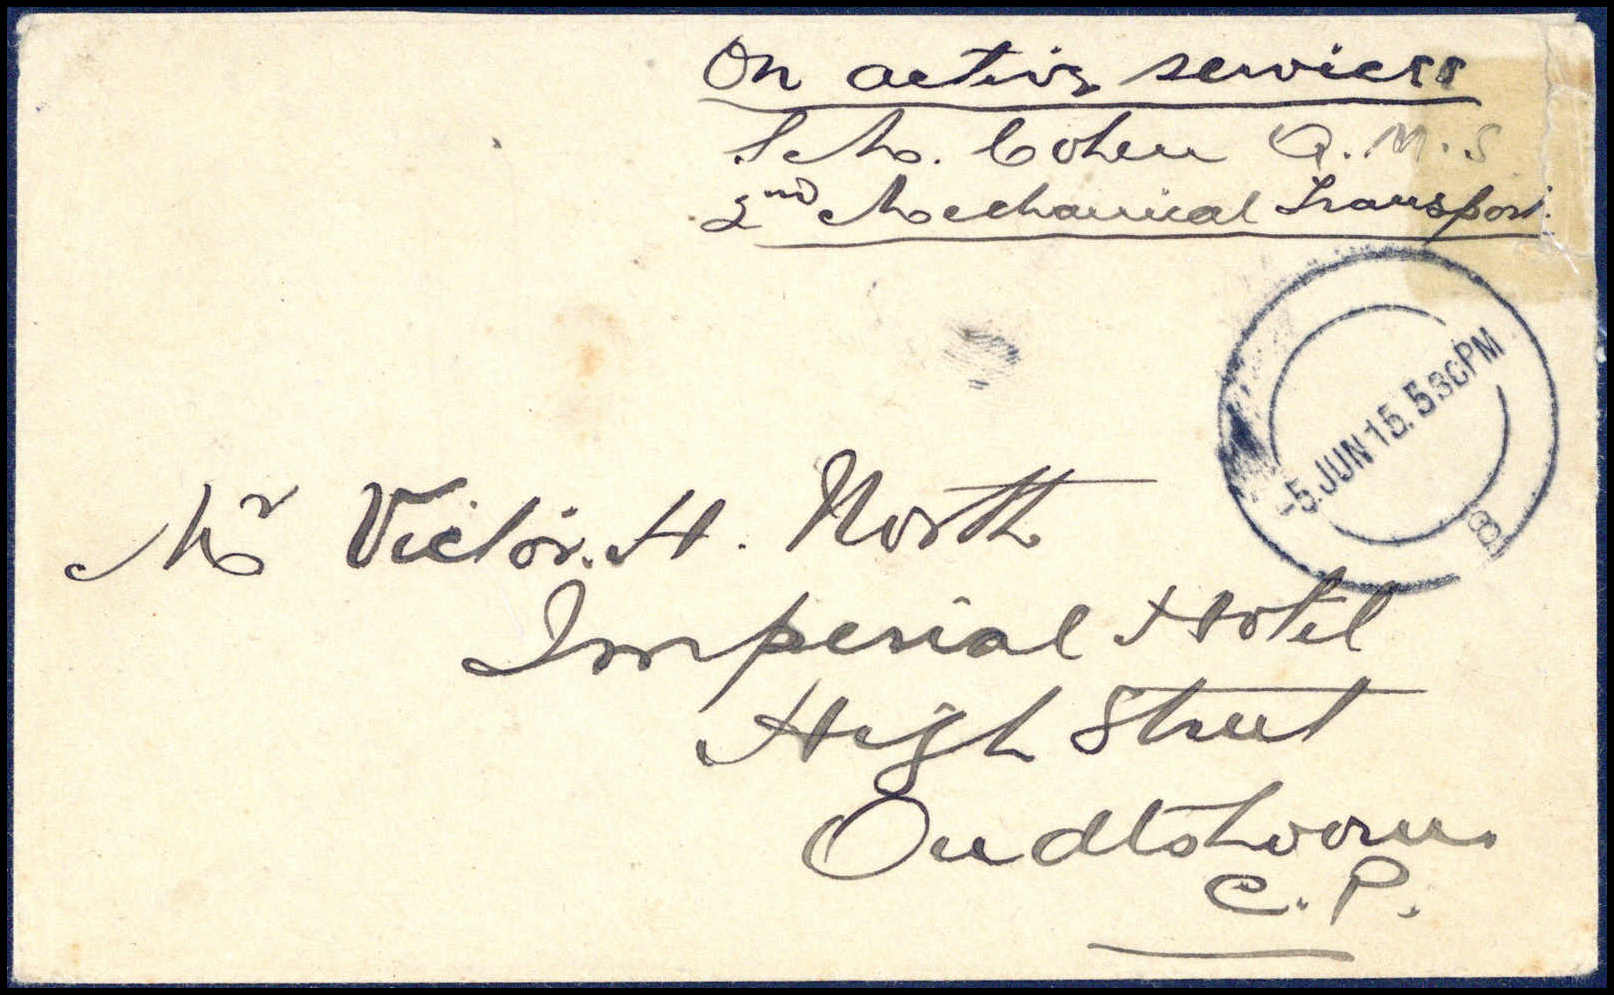 On active service
S. M. Cohen Q.M.S
2nd Mechanical Transport.
-5.JUN 15. 5.30PM
8
Mr Victor. H. North
Imperial Hotel
High Street
Oudtshoorn.
C. P.